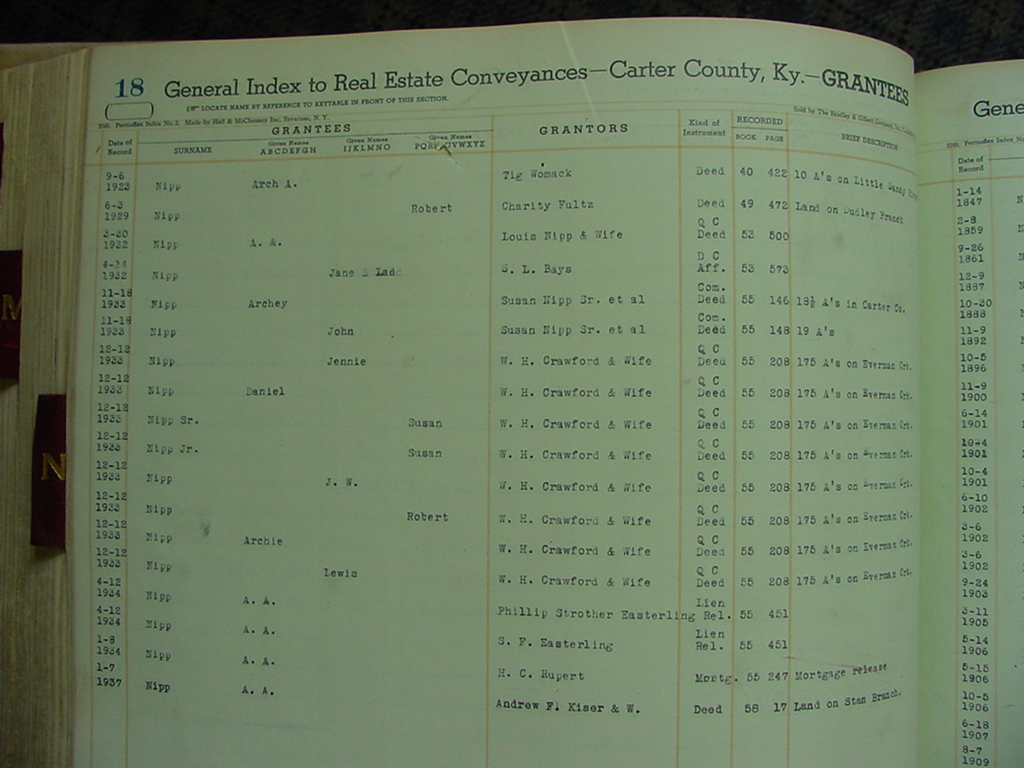 18 General Index to Real Estate Conveyances—Carter County, Ky.—GRANTEES
LOCATE NAME BY REFERENCE TO KEYTABLE IN FRONT OF THIS SECTION.
Permaflex Index No. 1. Made by Hall & McChesney Inc, Syracuse, N. Y. Sold by The Bradley & Gilbert
GRANTEES GRANTORS Kind of Instrument RECORDED BRIEF DESCRIPTION
Date of Record SURNAME Given Names ABCDEFGH Given Names IJKLMNO Given Names BOOK PAGE
9-6 1923 Nipp Arch A. Tig Womack Deed 40 422 10 A's on Little Sandy
6-3 1929 Nipp Robert Charity Fultz Deed 49 472 Land on Dudley Branch
3-30 1932 Nipp A. A. Louis Nipp & Wife Q C Deed 53 500
4-14 1932 Nipp Jane & Ladd S. L. Bays D C Aff. 53 573
11-18 1933 Nipp Archey Susan Nipp Sr. et al Com. Deed 55 146 18½ A's in Carter Co.
11-18 1933 Nipp John Susan Nipp Sr. et al Com. Deed 55 148 19 A's
12-12 1933 Nipp Jennie W. H. Crawford & Wife Q C Deed 55 208 175 A's on Everman Crk.
12-12 1933 Nipp Daniel W. H. Crawford & Wife Q C Deed 55 208 175 A's on Everman Crk.
12-12 1933 Nipp Sr. Susan W. H. Crawford & Wife Q C Deed 55 208 175 A's on Everman Crk.
12-12 1933 Nipp Jr. Susan W. H. Crawford & Wife Q C Deed 55 208 175 A's on Everman Crk.
12-12 1933 Nipp J. W. W. H. Crawford & Wife Q C Deed 55 208 175 A's on Everman Crk.
12-12 1933 Nipp Robert W. H. Crawford & Wife Q C Deed 55 208 175 A's on Everman Crk.
12-12 1933 Nipp Archie W. H. Crawford & Wife Q C Deed 55 208 175 A's on Everman Crk.
12-12 1933 Nipp Lewis W. H. Crawford & Wife Q C Deed 55 208 175 A's on Everman Crk.
4-12 1934 Nipp A. A. Phillip Strother Easterling Lien Rel. 55 451
4-12 1934 Nipp A. A. S. F. Easterling Lien Rel. 55 451
1-8 1934 Nipp A. A. H. C. Rupert Mortg. 55 247 Mortgage release
1-7 1937 Nipp A. A. Andrew F. Kiser & W. Deed 58 17 Land on Stan Branch.
M
N
Gene
Permaflex Index No
Date of Record
1-14 1847
2-8 1859
9-26 1861
12-9 1887
10-30 1888
11-9 1892
10-5 1896
11-9 1900
6-14 1901
1901
10-4 1901
6-10 1902
3-6 1902
3-6 1902
9-24 1903
3-11 1905
5-14 1906
5-15 1906
10-5 1906
6-18 1907
8-7 1909